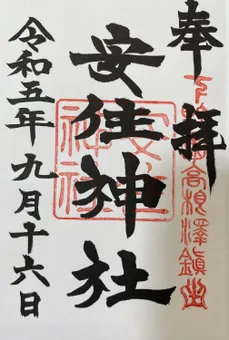 奉拝
下野國高根澤鎮座
安住神社
安住神社
令和五年九月十六日